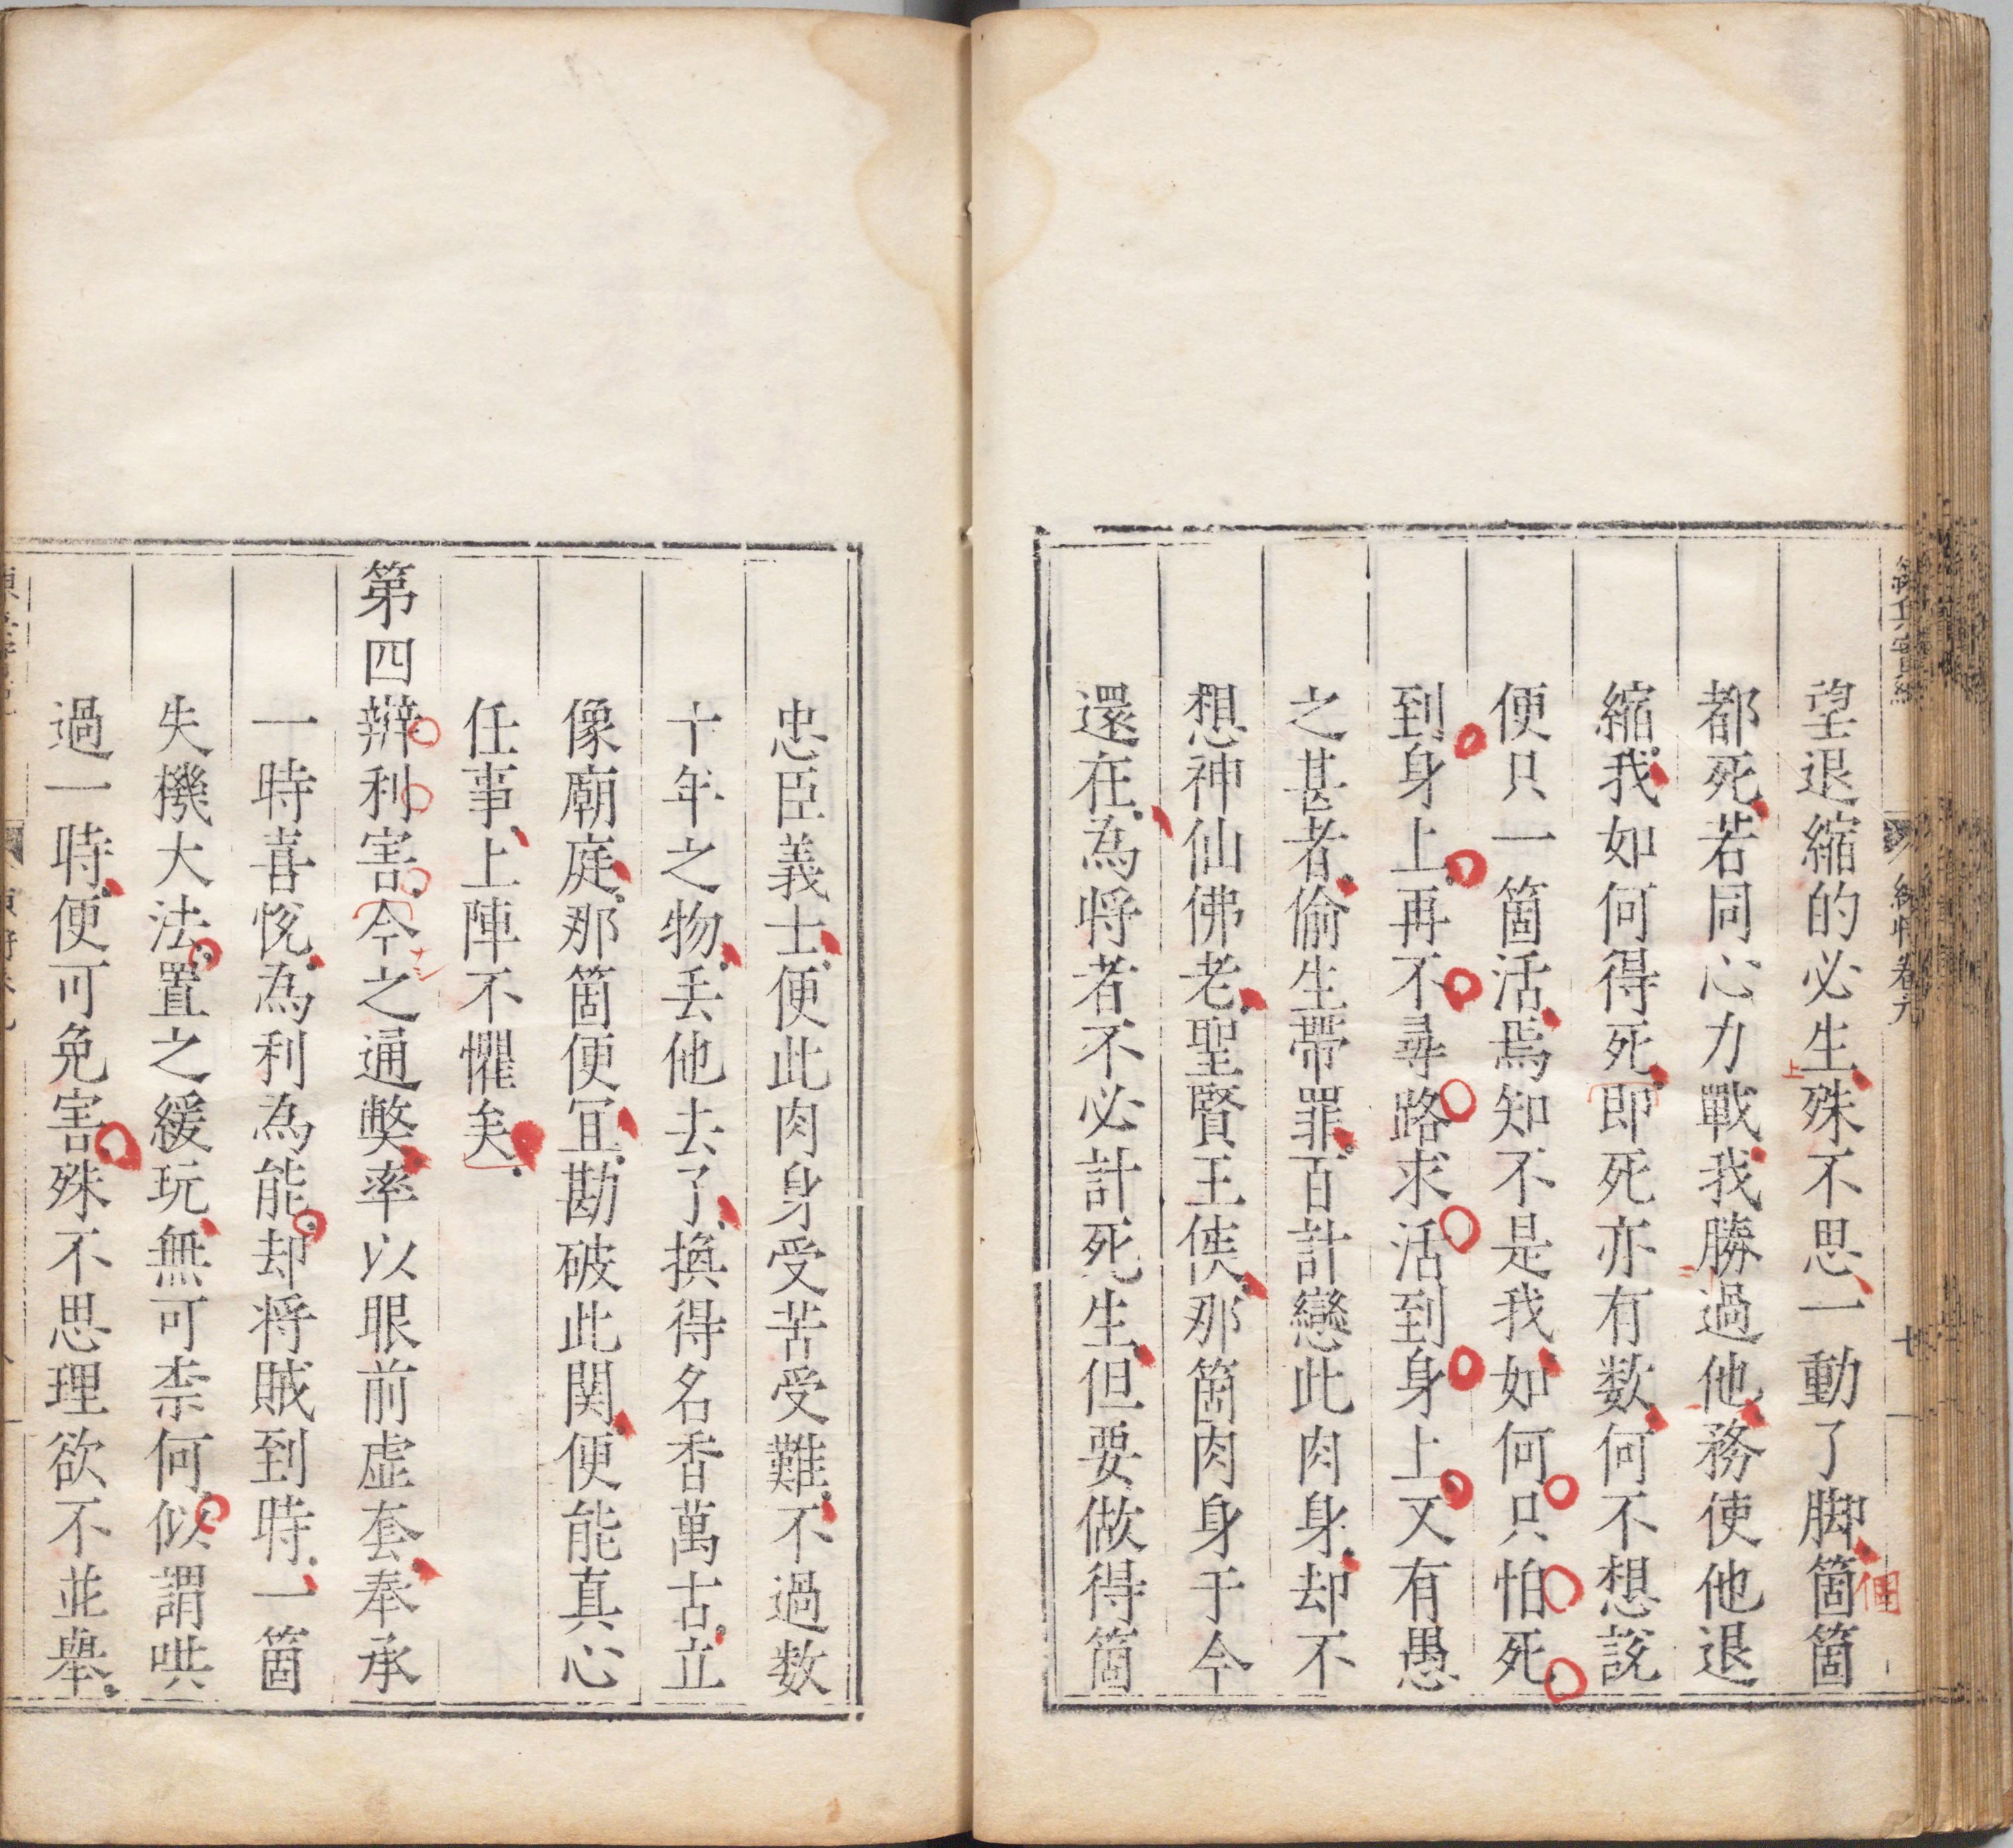 練兵實紀
練將卷九
十
望退縮的必生殊不思一動了脚箇箇
上
個
都死若同心力戰我勝過他務使他退
縮我如何得死即死亦有数何不想説
便只一箇活焉知不是我如何只怕死
到身上再不尋路求活到身上又有愚
之甚者偷生帶罪百計戀此肉身却不
想神仙佛老聖賢王侯那箇肉身于今
還在為将者不必計死生但要做得箇
忠臣義士便此肉身受苦受難不過数
十年之物丢他去了換得名香萬古立
像廟庭那箇便宜勘破此関便能真心
任事上陣不懼矣
第四辯利害今之通弊率以眼前虚套奉承
一時喜悦為利為能却将賊到時一箇
失機大法置之緩玩無可柰何似謂哄
過一時便可免害殊不思理欲不並舉